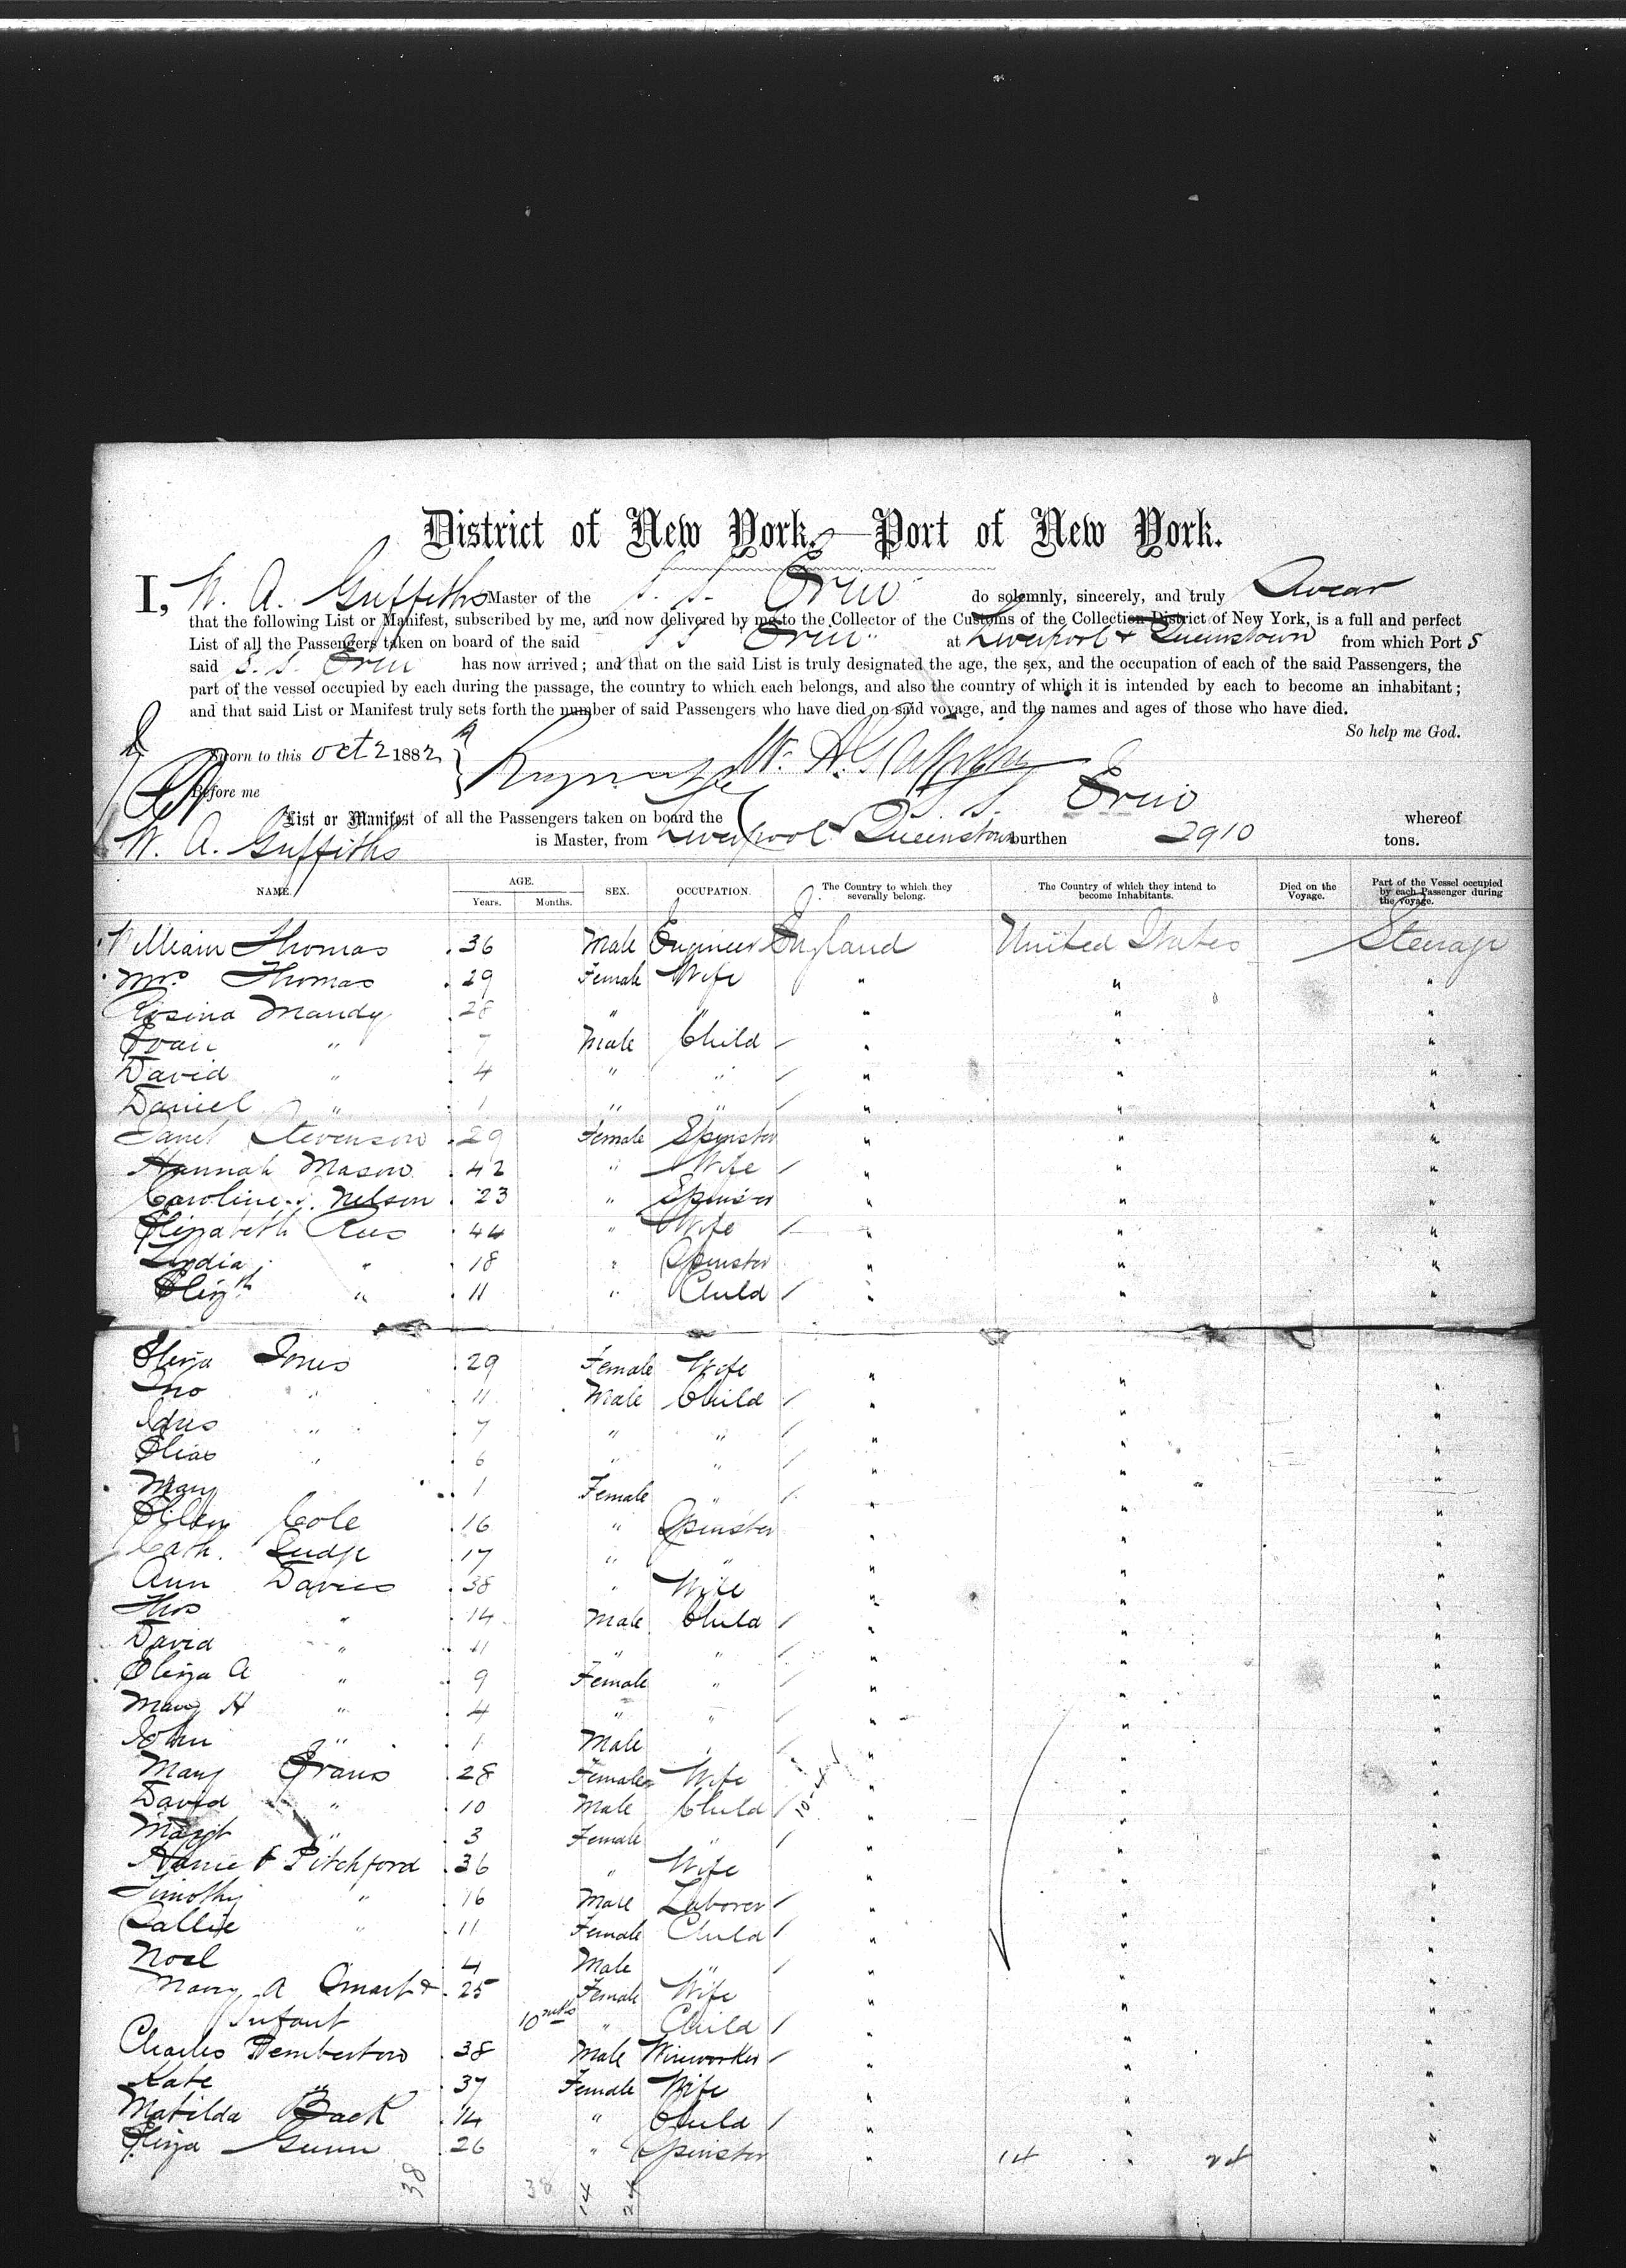 District of New York,—Port of New York.
I, W. A. Griffiths Master of the S. S. Erin do solemnly, sincerely, and truly Swear
that the following List or Manifest, subscribed by me, and now delivered by me to the Collector of the Customs of the Collection District of New York, is a full and perfect
List of all the Passengers taken on board of the said S S "Erin" at Liverpool & Queenstown from which Port s
said S. S. Erin has now arrived; and that on the said List is truly designated the age, the sex, and the occupation of each of the said Passengers, the
part of the vessel occupied by each during the passage, the country to which each belongs, and also the country of which it is intended by each to become an inhabitant;
and that said List or Manifest truly sets forth the number of said Passengers who have died on said voyage, and the names and ages of those who have died.
So help me God.
Sworn to this Oct 2 1882 W. A. Griffiths
Before me
List or Manifest of all the Passengers taken on board the S S. Erin whereof
W. A. Griffiths is Master, from Liverpool & Queenstown burthen 2910 tons.
NAME. AGE. Years. Months. SEX. OCCUPATION. The Country to which they severally belong. The Country of which they intend to become Inhabitants. Died on the Voyage. Part of the Vessel occupied by each Passenger during the voyage.
William Thomas 36 Male Engineer England United States Steerage
Mrs Thomas 29 Female Wife " " "
Rosina Mandy 28 " " " " "
Evan " 7 Male Child " " "
David " 4 " " " " "
Daniel " 1 " " " " "
Janet Stevenson 29 Female Spinster " " "
Hannah Mason 42 " Wife " " "
Caroline J. Nelson 23 " Spinster " " "
Elizabeth Rees 44 " Wife " " "
Lydia " 18 " Spinster " " "
Elizth " 11 " Child " " "
Eliza Jones 29 Female Wife " " "
Jno " 11 Male Child " " "
Idris " 7 " " " " "
Elias " 6 " " " " "
Mary 1 Female " " " "
Ellen Cole 16 " Spinster " " "
Cath. Judge 17 " " " " "
Ann Davies 38 " Wife " " "
Thos " 14 Male Child " " "
David " 11 " " " " "
Eliza A " 9 Female " " " "
Mary H " 4 " " " " "
John " 1 Male " " " "
Mary Evans 28 Female Wife " " "
David " 10 Male Child " " "
Margt " 3 Female " " " "
Pitchford 36 " Wife " " "
Timothy " 16 Male Laborer " " "
Sallie " 11 Female Child " " "
Noel 4 Male " " " "
Mary A Smart & 25 Female Wife " " "
Infant 10 mths " Child " " "
Charles Pemberton 38 Male Wireworker " " "
Kate " 37 Female Wife " " "
Matilda Back 14 " Child " " "
Eliza Gunn 26 " Spinster " 14 " 24 "
38 38 14 24